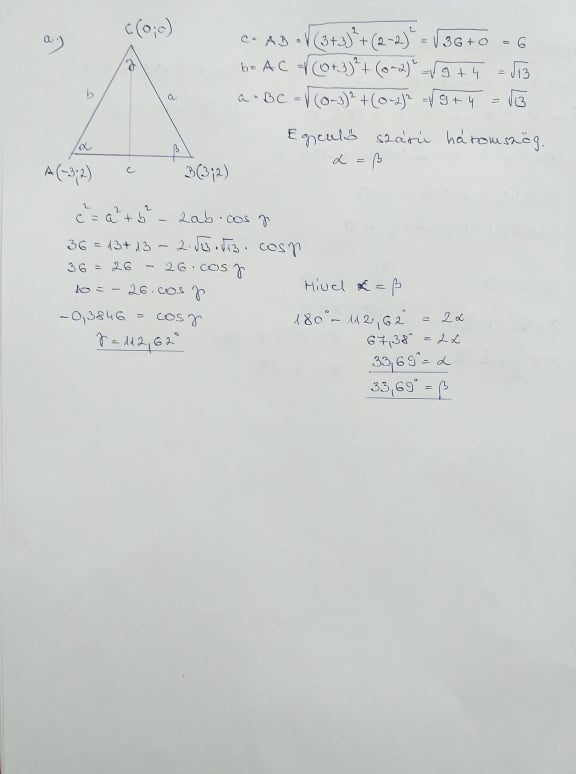 a.)
C(0;0)
γ
b
a
α
β
A(-3;2)
c
B(3;2)
c = AB = √((3+3)²+(2-2)²) = √(36+0) = 6
b = AC = √((0+3)²+(0-2)²) = √(9+4) = √13
a = BC = √((0-3)²+(0-2)²) = √(9+4) = √13
Egyenlő szárú háromszög.
α = β
c² = a² + b² - 2ab · cos γ
36 = 13 + 13 - 2·√13·√13 · cos γ
36 = 26 - 26 · cos γ
10 = - 26 · cos γ
-0,3846 = cos γ
γ = 112,62°
Mivel α = β
180° - 112,62° = 2α
67,38° = 2α
33,69° = α
33,69° = β